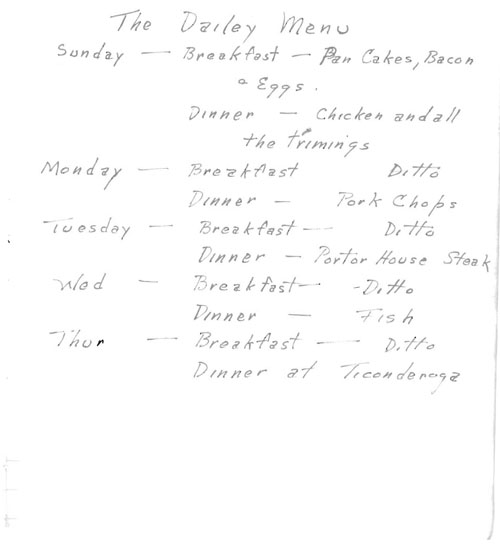 The Dailey Menu
Sunday — Breakfast — Pan Cakes, Bacon
& Eggs.
Dinner — Chicken and all
the Trimings
Monday — Breakfast Ditto
Dinner — Pork Chops
Tuesday — Breakfast — Ditto
Dinner — Portor House Steak
Wed — Breakfast — -Ditto
Dinner — Fish
Thur — Breakfast — Ditto
Dinner at Ticonderoga